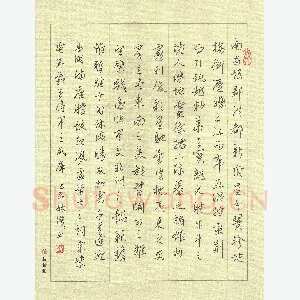 南昌故郡洪都新府星分翼軫地
接衡廬襟三江而帶五湖控蠻荊
而引甌越物華天寶龍光射牛斗之
墟人傑地靈徐孺下陳蕃之榻雄州
霧列俊采星馳臺隍枕夷夏之交賓
主盡東南之美都督閻公之雅
望棨戟遙臨宇文新州之懿範
襜帷暫駐十旬休暇勝友如雲千里逢迎
高朋滿座騰蛟起鳳孟學士之詞宗紫
電青霜王將軍之武庫